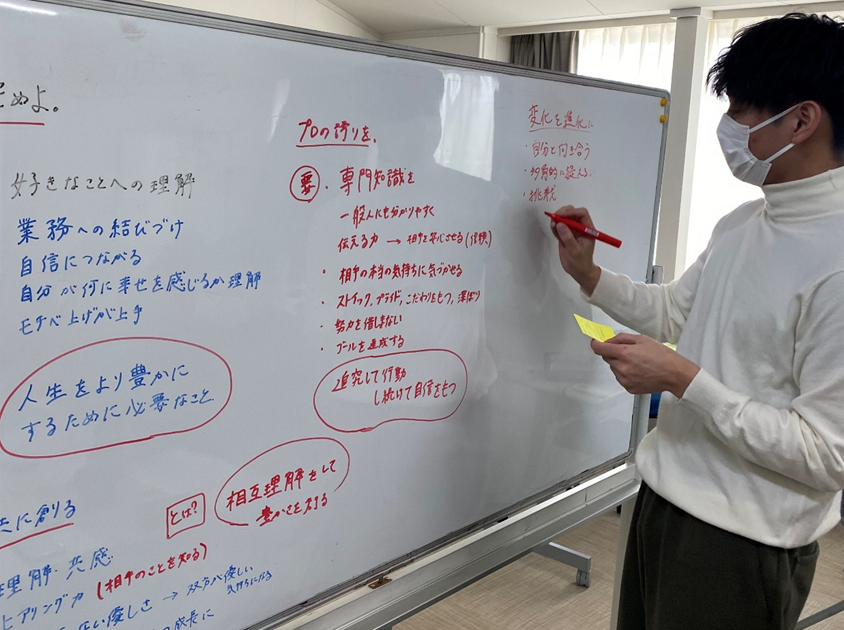 めよ。
好きなことへの理解
業務への結びづけ
自信につながる
自分が何に幸せを感じるか理解
モチベ上げが上手
人生をより豊かに
するために必要なこと
共に創る
理解・共感
ヒアリング力 (相手のことを知る)
優しさ → 双方が優しい
気持ちになる
成長に
プロの誇りを。
要 ・専門知識を
一般人にも分かりやすく
伝える力 → 相手を安心させる(信頼)
・相手の本当の気持ちに気づかせる
・ストイック、プライド、こだわりをもつ、深ぼり
・努力を惜しまない
・ゴールを達成する
追究して行動
し続けて自信をもつ
とは?
相互理解をして
豊かさを創る
変化を進化に
・自分と向き合う
・多角的に捉える
・挑戦